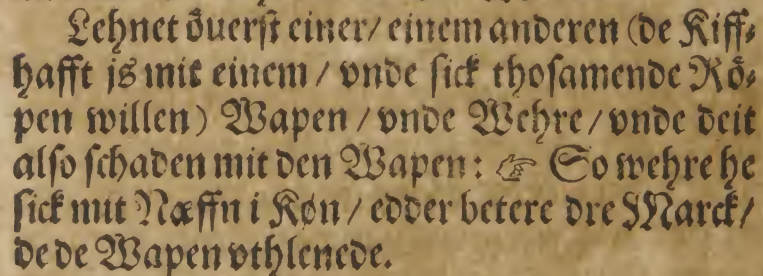 Lehnet öuerst einer/ einem anderen (de Kiff⸗
hafft js mit einem / vnde sick thosamende Rö⸗
pen willen) Wapen / vnde Wehre/ vnde deit
also schaden mit den Wapen: ☞ So wehre he
sick mit Næffn i Køn/ edder betere dre Marck/
de de Wapen vthlenede.